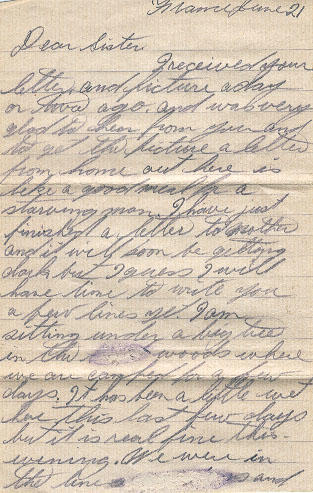 France June 21
Dear Sister
I received your
letter and picture a day
or two ago. and was very
glad to hear from you and
to get the picture a letter
from home out here is
like a good meal to a
starving man. I have just
finished a letter to mother
and it will soon be getting
dark but I guess I will
have time to write you
a few lines yet I am
sitting under a big tree
in the woods where
we are camped for a few
days. It has been a little wet
here this last few days
but it is real fine this
evening. We were in
the line and